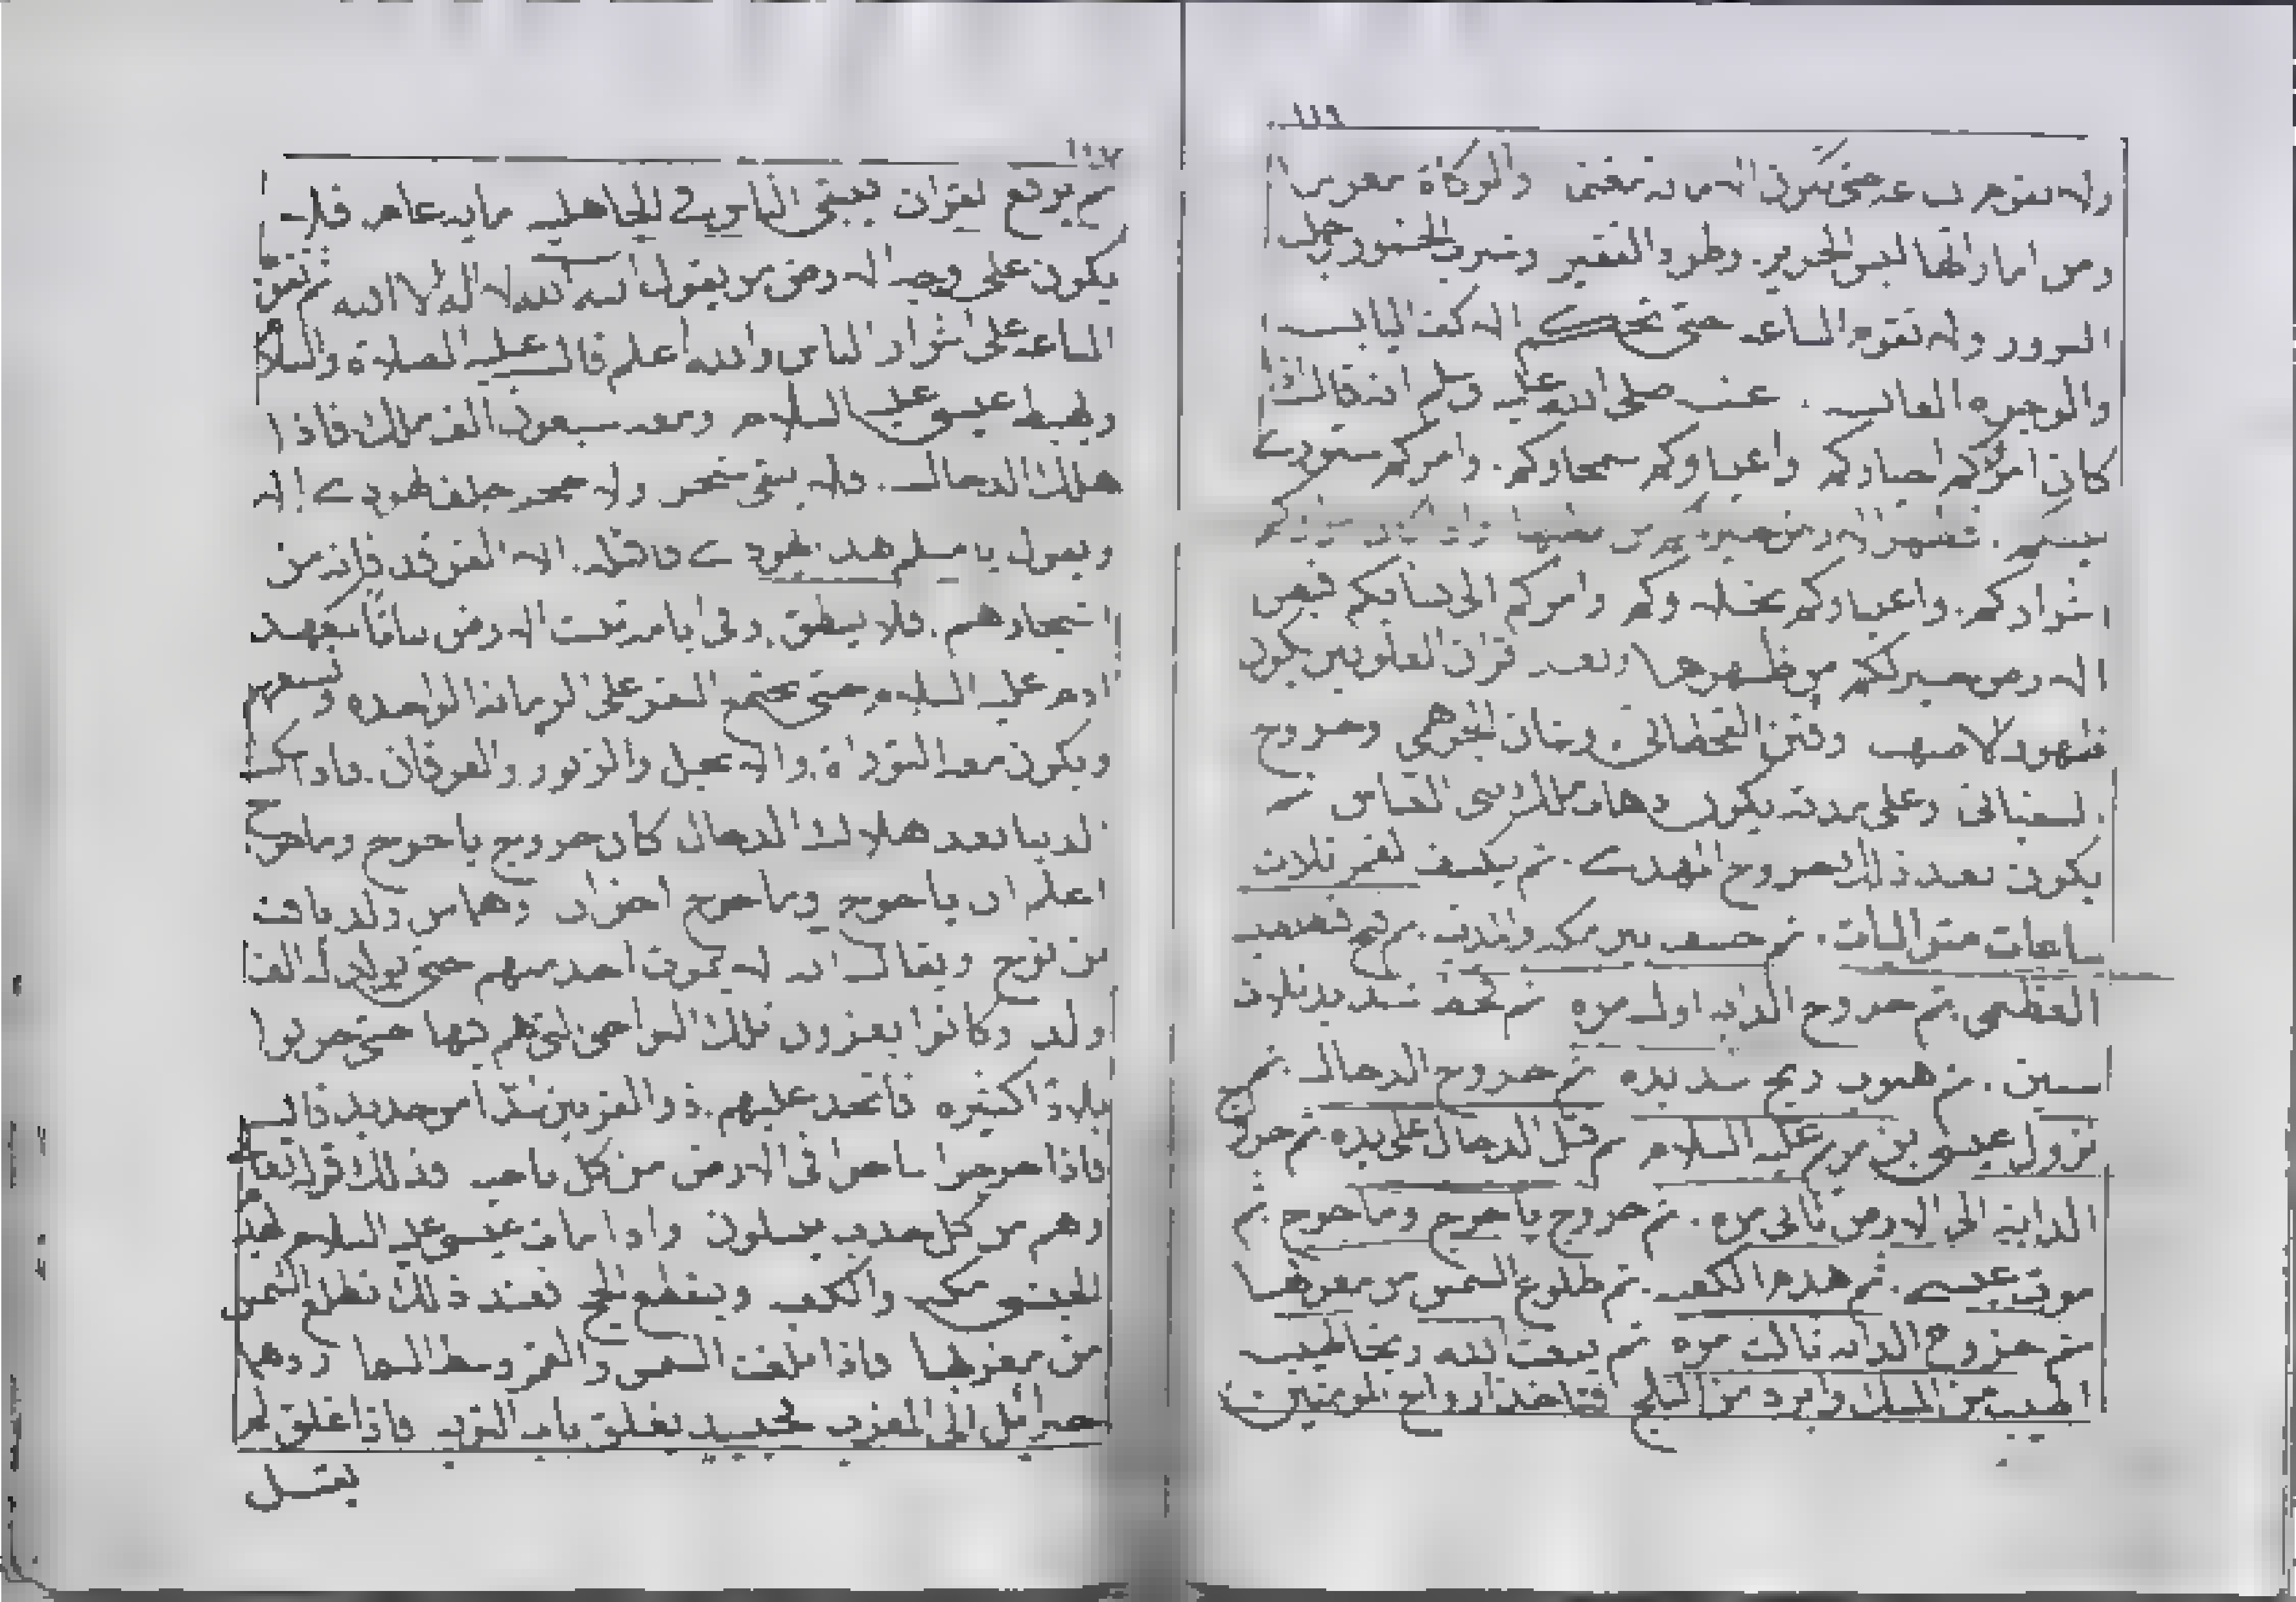 ١١٩
ولا تقوم الساعة حتى تكون الامانة مغنما والزكاة مغرما
ومن اماراتها لبس الحرير وشرب الخمور
الزور ولا تقوم الساعة حتى تحكم
والوجوه عنه صلى الله عليه وسلم انه قال اذا
كان امراؤكم خياركم واغنياوكم سمحاوكم وامركم شورى
بينكم فظهر الارض خير لكم من بطنها واذا كان امراؤكم
شراركم واغنياوكم بخلاوكم وامركم الى نسايكم فبطن
الارض خير لكم من ظهرها وبعد قران العلويين يكون
ظهور الاصهب وفتن القحطانى وخروج
السفيانى وعلى مدته يكون
يكون بعد ذلك خروج المهدى ثم يكسف القمر ثلاث
ساعات متواليات ثم خسف بين مكة والمدينة ثم
العظمى ثم خروج الدابة اول مره ثم قحط شديد ثلاث
سنين ثم هبوب ريح شديده ثم خروج الدجال ثم
نزول عيسى بن مريم عليه السلام ثم قتل الدجال على يده ثم خروج
الدابة الى الارض ثانى مره ثم خروج ياجوج وماجوج ثم
موت عيسى ثم هدم الكعبه ثم طلوع الشمس من مغربها
ثم خروج الدابه ثالث مره ثم يبعث الله ريحا طيبه
اطيب من المسك وابرد من الثلج فتاخذ ارواح المومنين
ثم يرفع القران فيبقى الناس فى الجاهليه مايه عام فلا
يكون على وجه الارض من يقول الله الله لا اله الا الله ثم تقوم
الساعه على اشرار الناس والله اعلم قال عليه الصلاة والسلام
ويهبط عيسى عليه السلام ومعه سبعون الف ملك فاذا
هلك الدجال ولا يبقى شجر ولا حجر خلفه يهودى الا
ويقول يا مسلم هذا يهودى فاقتله الا الغرقد فانه من
اشجارهم فلا ينطق وفى ايامه تنبت الارض نباتا كعهد
ادم عليه السلام حتى يجتمع النفر على الرمانة الواحده وتشبعهم
ويكون معه التوراة والانجيل والزبور والفرقان
الدنيا بعد هلاك الدجال كان خروج ياجوج وماجوج
اعلم ان ياجوج وماجوج اخوان وهما من ولد يافث
بن نوح ويقال انه لا يموت احد منهم حتى يولد له الف
ولد وكانوا يغزون تلك النواحى التى هم فيها حتى خربوا
بلادا كثيره فاتخذ عليهم ذو القرنين سدا من حديد قال
فاذا خرجوا ساحوا فى الارض من كل ناحيه وذلك قوله تعالى
وهم من كل حدب ينسلون واذا مات عيسى عليه السلام
مكه والكعبه وينقطع الحج فعند ذلك تطلع الشمس
من مغربها فاذا بلغت الشمس والقمر وسط السما ردهما
جبرائيل الى المغرب فحينيذ يغلق باب التوبه فاذا اغلق لم
يقبل